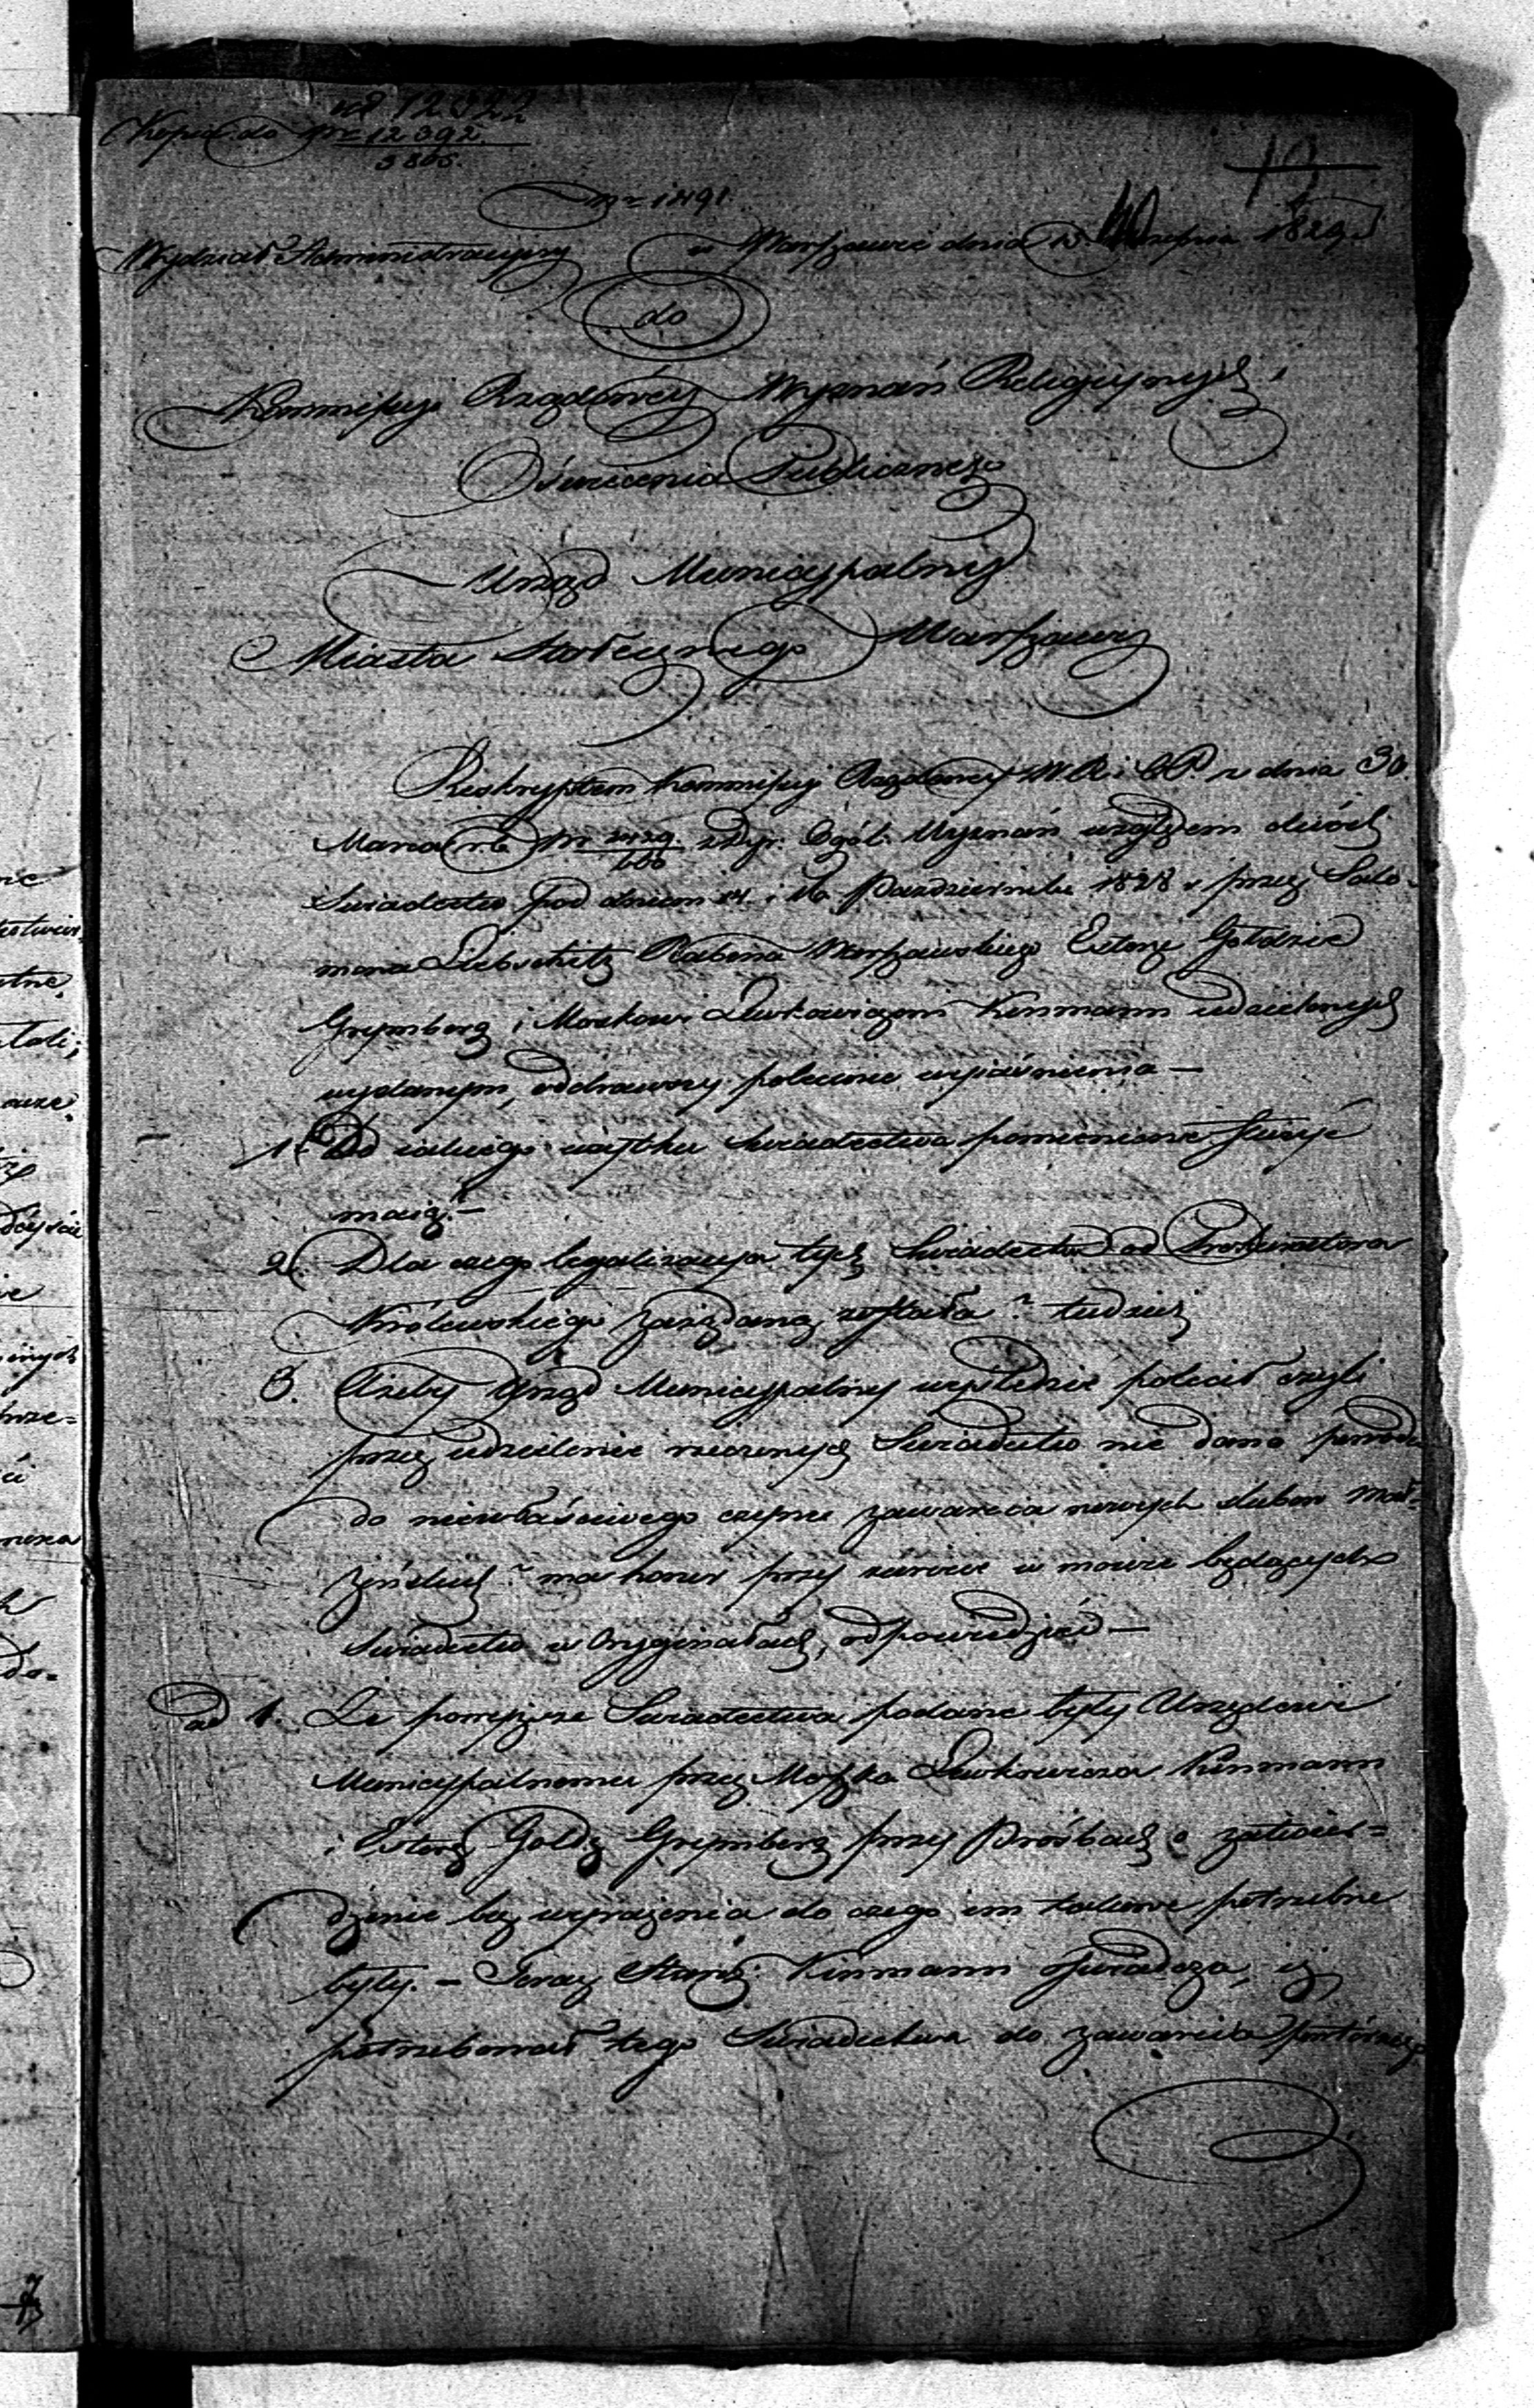 ad 12.322
Kopia do Nr 12.392.
3805.
Nr 1491.
Wydział Administracyjny w Warszawie dnia Sierpnia 1829
do
Kommissyi Rządowéy Wyznań Religijnych i
Oświecenia Publicznego
Urząd Municypalny
Miasta Stołecznego Warszawy
Reskryptem Kommissyi Rządowey W R i OP z dnia 30.
Marca rb Nr Dyr. Ogól. Wyznań względem dwóch
Swiadectw pod dniem 14. i 16 Pazdziernika 1828 r przez Salo-
mona Liebschitz Rabina Warszawskiego Esterze Gołdzie
Grymberg i Moszkowi Lewkowiczowi Kinmann udzielonych
wydanym, odebrawszy polecenie wyjaśnienia —
1. Do iakiego użytku Swiadectwa pomienione służyć
maią. —
2. Dla czego legalizacya tych Swiadectw od Prokuratora
Królewskiego zażądaną została? tudzież
3. Ażeby Urząd Municypalny wyśledzić polecił czyli
przez udzielenie rzeczonych Swiadectw nie dano powodu
do niewłaściwego czynu zawarcia nowych slubow mał-
żeńskich? ma honor przy zwrocie w mowie będących
Swiadectw w Oryginałach, odpowiedzieć —
ad 1. Że powyższe Swiadectwa podane były Urzędowi
Municypalnemu przez Moszka Lewkowicza Kinmann
i Esterę Goldę Grymberg przy Prośbach o zatwier=
dzenie bez wyrażenia do czego im takowe potrzebne
były. — Teraz Staroz: Kinmann oświadcza, iż
potrzebował tego Swiadectwa do zawarcia powtórnego